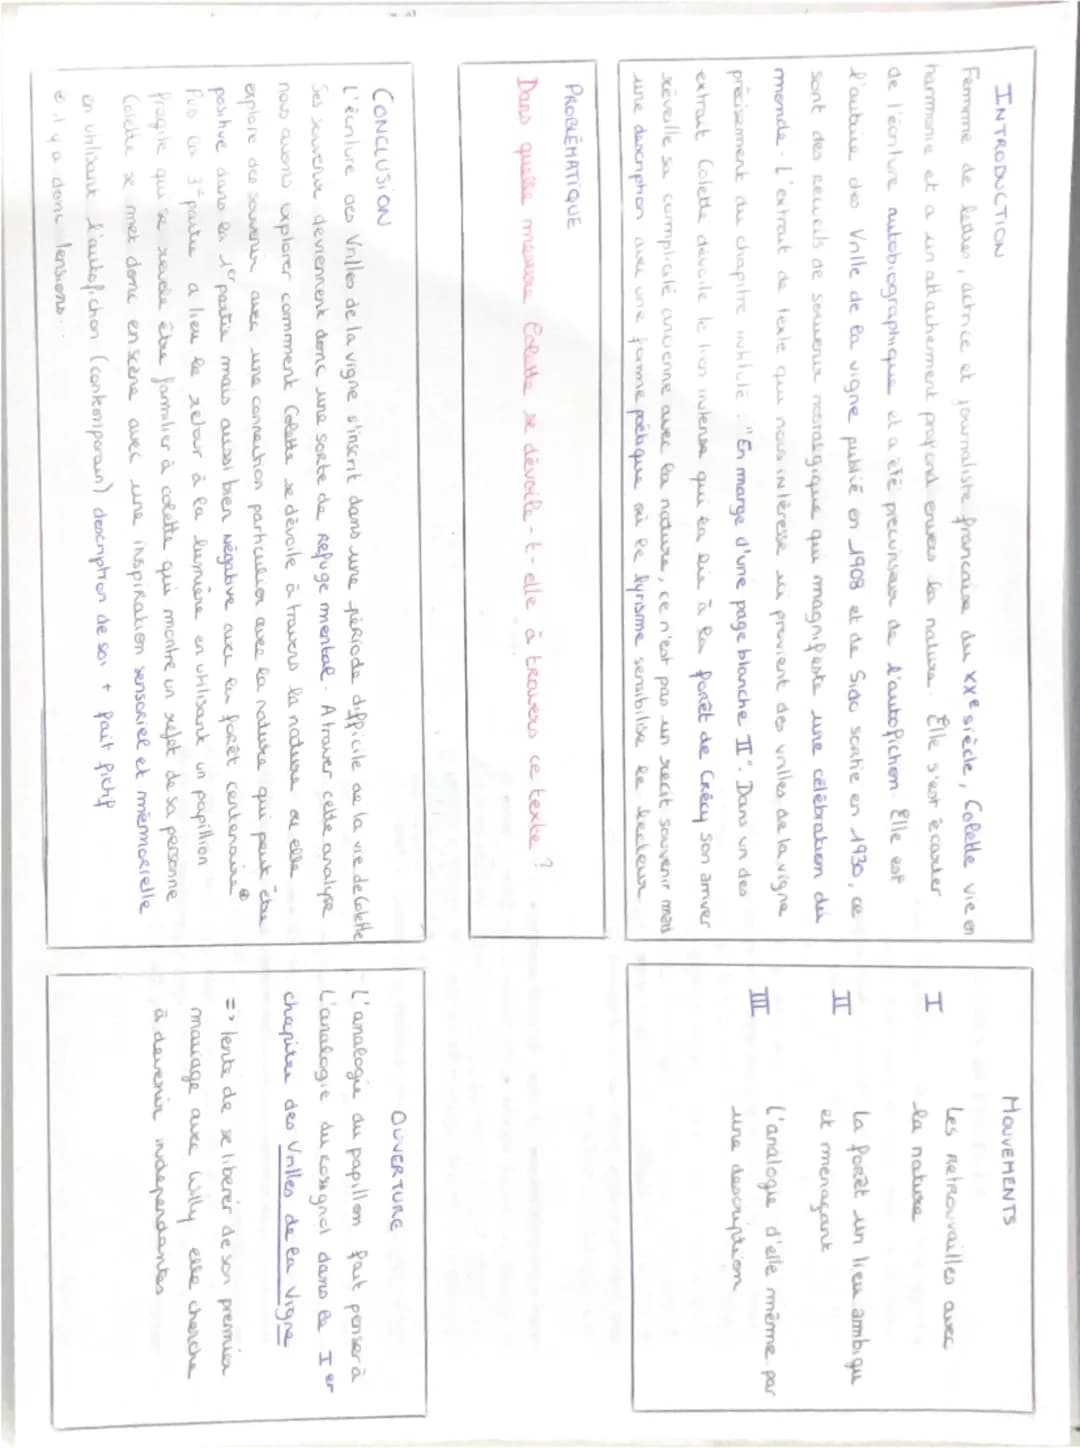 INTRODUCTION
Femme de lettres, actrice et journaliste française du XXe siècle, Colette vie en
harmonie et a un attachement profond envers la nature. Elle s'est écarter
de l'écriture autobiographique et a été précurseur de l'autofiction. Elle est
l'autrice des Vrille de la vigne publié en 1908 et de Sido sortie en 1930, ce
sont des recueils de souvenir nostalgique qui magnifeste une célébration du
monde. L'extrait de texte qui nous intéresse ici provient des vrilles de la vigne
précisement du chapitre intitulé : "En marge d'une page blanche II". Dans un des
extrait Colette dévoile le lien intense qui la lie à la forêt de Crécy son arriver
réveille sa complicité ancienne avec la nature, ce n'est pas un récit souvenir mais
une description avec une forme poétique où le lyrisme sensibilise le lecteur
PROBLÉMATIQUE
Dans quelle mesure Colette se dévoile-t-elle à travers ce texte ?
CONCLUSION
L'écriture des Vrilles de la vigne s'inscrit dans une période difficile de la vie de Colette
Ses souvenir deviennent donc une sorte de refuge mental. A traver cette analyse
nous avons explorer comment Colette se dévoile à travers la nature où elle
explore des souvenir avec une connection particulier avec la nature qui peut être
positive dans la 1er partie mais aussi bien négative avec la forêt centenaire ⊕
Puis la 3e partie a lieu le retour à la lumière en utilisant un papillion
fragile qui se révèle être familier à colette qui montre un reflet de sa personne
Colette se met donc en scène avec une inspiration sensoriel et mémorielle
en utilisant l'autofiction (contemporain) description de soi + fait fictif
⊕ il y a donc tensions...
MOUVEMENTS
I Les retrouvailles avec
la nature
II La forêt un lieu ambigu
et menaçant
III L'analogie d'elle même par
une description
OUVERTURE
L'analogie du papillon fait penser à
L'analogie du rossignol dans le Ier
chapitre des Vrilles de la vigne
=> tente de se liberer de son premier
mariage avec Willy elle cherche
à devenir independantes